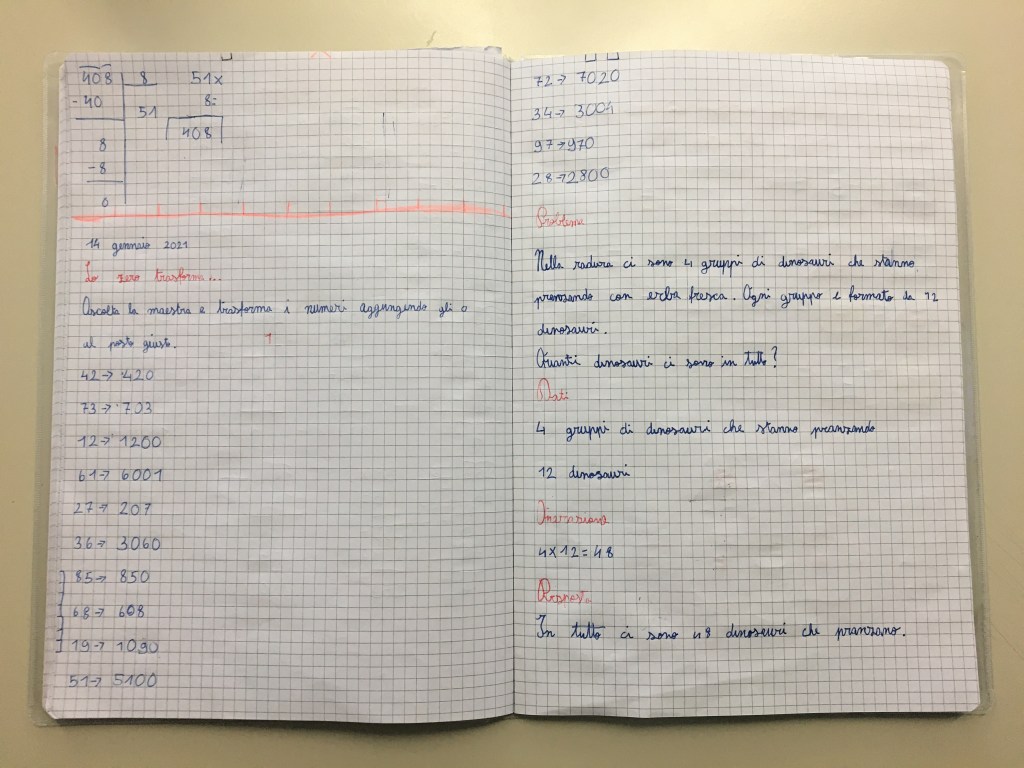 408 8 51x
-40 51 8=
8 408
-8
0
14 gennaio 2021
Lo zero trasforma...
Ascolta la maestra e trasforma i numeri aggiungendo gli 0
al posto giusto.
42→ 420
73→ 703
12→ 1200
61→ 6001
27→ 207
36→ 3060
85→ 850
68→ 608
19→ 1090
51→ 5100
72→ 7020
34→ 3004
97→970
28→2800
Problema
Nella radura ci sono 4 gruppi di dinosauri che stanno
pranzando con erba fresca. Ogni gruppo è formato da 12
dinosauri.
Quanti dinosauri ci sono in tutto?
Dati
4 gruppi di dinosauri che stanno pranzando
12 dinosauri
4x12=48
Risposta
In tutto ci sono 48 dinosauri che pranzano.